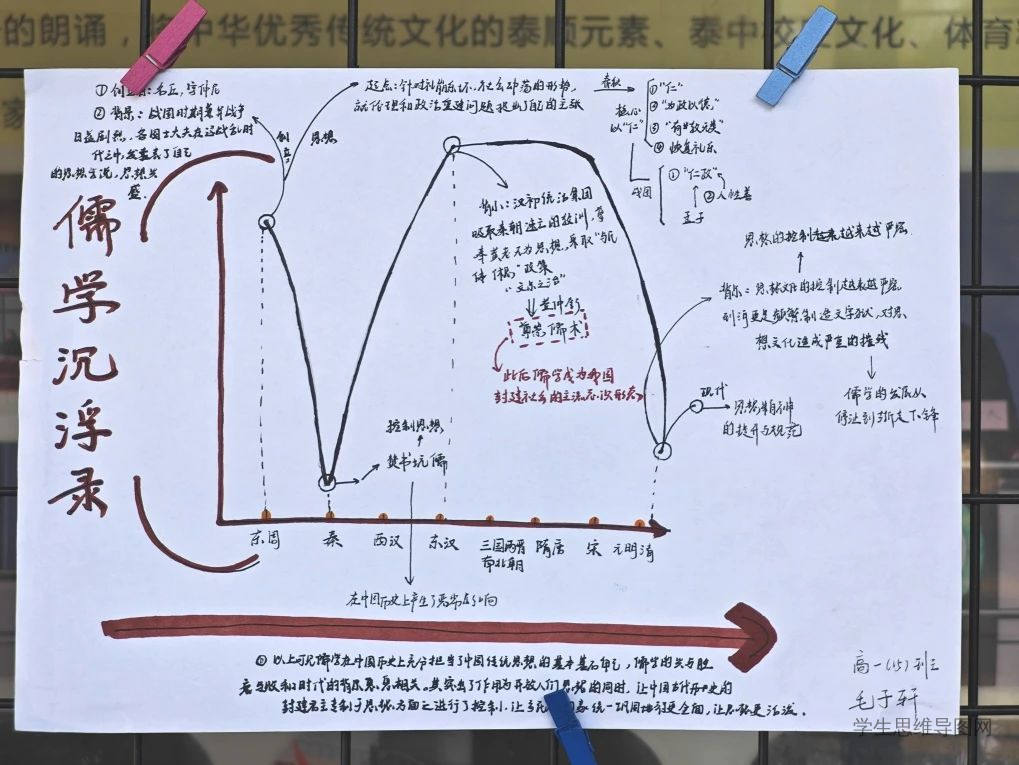 的朗诵，
中华优秀传统文化的泰顺元素、泰中校
文化、体育
家
儒学沉浮录
① 创
：孔丘，字仲尼
② 背景：战国时期兼并战争
日益剧烈，各国士大夫在这战乱时
代之中，发表了自己
的思想言说，思想
盛。
创立
思想
起点：针对礼崩乐坏、社会动荡的形势，
就伦理和政治
问题提出了自己的主张
春秋
核心
以“仁”
① “仁”
② “为政以德”
③ “有教无类”
④ 恢复礼乐
战国
① “仁政”
② 人性善
孟子
背景：汉初统治集团
吸取秦朝速亡的教训，尊
奉黄老无为思想，采取“与民
休息”政策
“文景之治”
董仲舒
尊崇儒术
此后儒学成为我国
封建社会的主流意识形态
思想的控制越来越来越严厉
背景：思想文化的控制越来越严厉
到清更是频繁制造文字狱，对思
想文化造成严重的摧残
儒学的发展从
停滞到渐走下锋
现代
思想精神
的提升与规范
控制思想
焚书坑儒
东周
秦
西汉
东汉
三国两晋
南北朝
隋唐
宋
元明清
在中国历史上产生了
影响
以上可见儒学在中国历史上充分担当了中国传统思想的基本基石
，儒学的兴与胜
衰与败和时代的背景息息相关。其突出了作用为开放人们思想的同时，让中国古代历史的
封建君主专制于思想方面之进行了控制，让
统一巩固
更全面，让思想更活泼。
高一(15)班
毛子轩
学生思维导图网